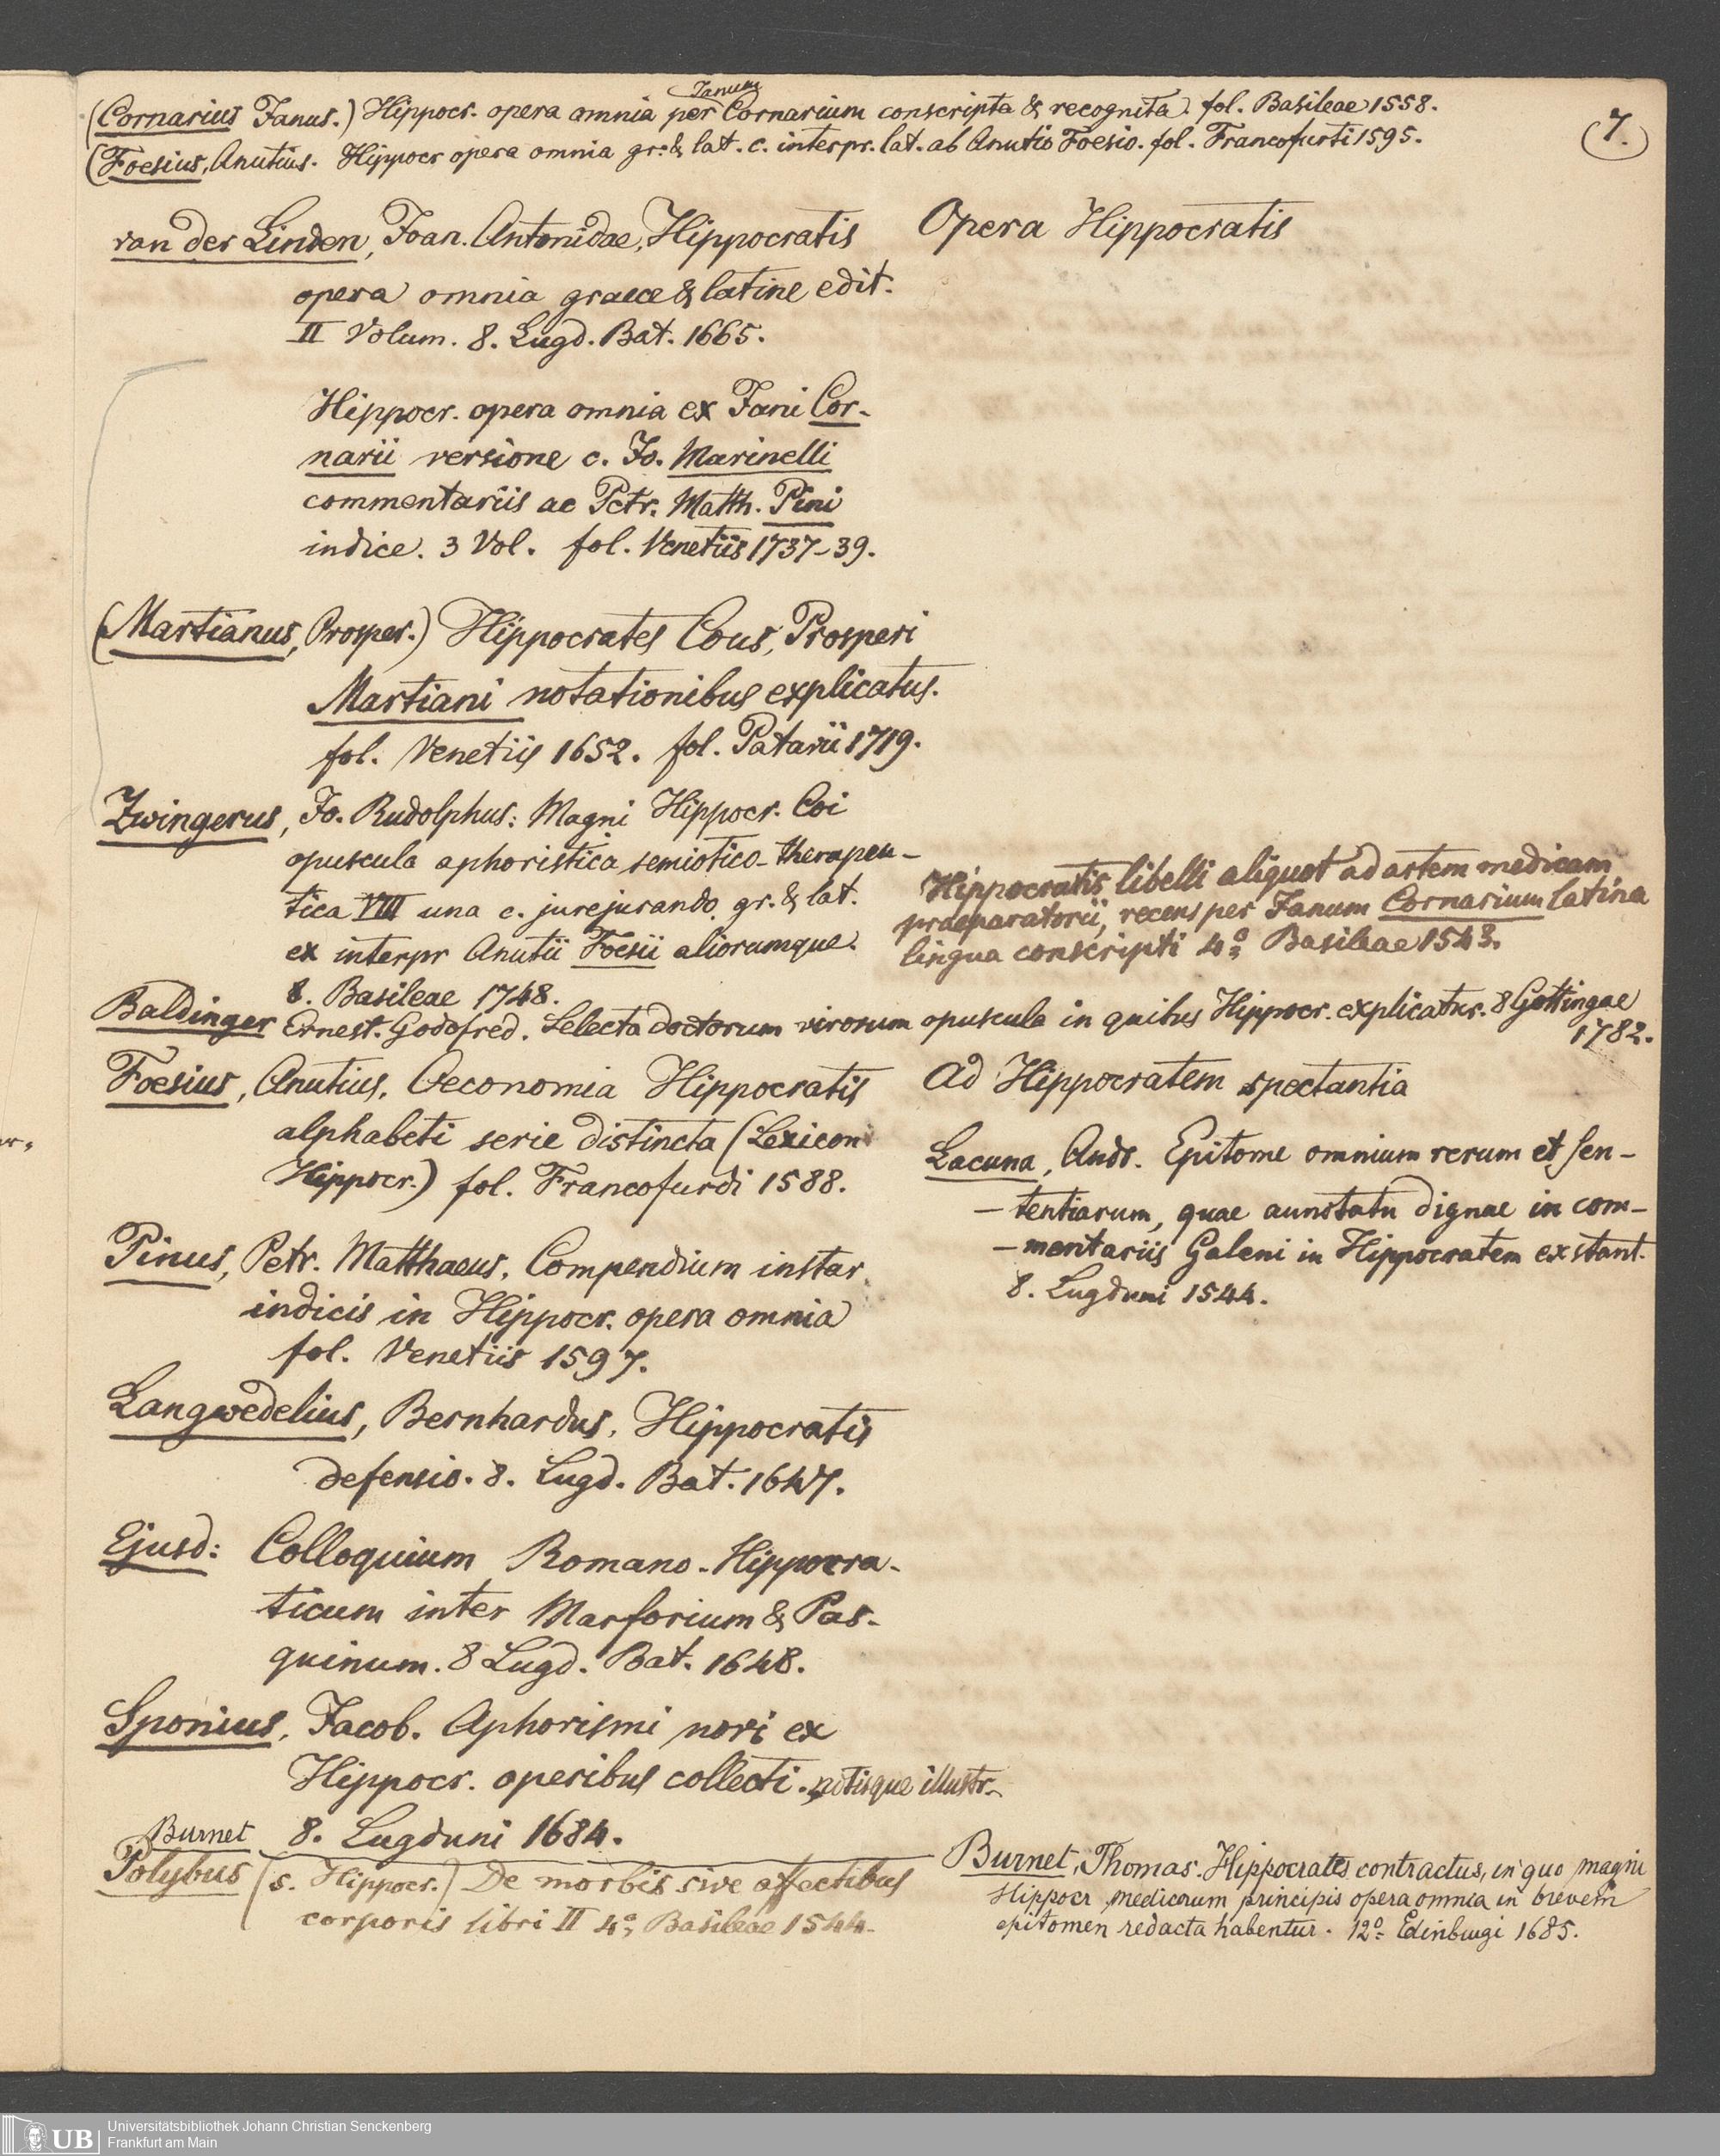 (Cornarius Janus.) Hippocr. opera omnia per Janum Cornarium conscripta & recognita. fol. Basileae 1558.
(Foesius, Anutius. Hippocr opera omnia gr. & lat. c. interpr. lat. ab Anutio Foesio. fol. Francofurti 1595.
7.
van der Linden, Joan. Antonidae, Hippocratis
opera omnia graece & latine edit.
II Volum. 8. Lugd. Bat. 1665.
Opera Hippocratis
Hippocr. opera omnia ex Jani Cor-
narii versione c. Jo. Marinelli
commentariis ac Petr. Matth. Pini
indice. 3 Vol. fol. Venetiis 1737-39.
(Martianus, Prosper.) Hippocrates Cous, Prosperi
Martiani notationibus explicatus.
fol. Venetiis 1652. fol. Patavii 1719.
Zwingerus, Jo. Rudolphus: Magni Hippocr. Coi
opuscula aphoristica semiotico-therapeu-
tica VIII una c. jurejurando gr. & lat.
ex interpr Anutii Foesii aliorumque.
8. Basileae 1748.
Hippocratis libelli aliquot ad artem medicam
praeparatorii, recens per Janum Cornarium latina
lingua conscripti 4o Basileae 1543.
Baldinger Ernest. Godofred. Selecta doctorum virorum opuscula in quibus Hippocr. explicatur. 8 Gottingae
1782.
Foesius, Anutius. Oeconomia Hippocratis
alphabeti serie distincta (Lexicon
Hippocr.) fol. Francofurdi 1588.
Pinus, Petr. Matthaeus. Compendium instar
indicis in Hippocr. opera omnia
fol. Venetiis 1597.
Langwedelius, Bernhardus. Hippocratis
defensio. 8. Lugd. Bat. 1647.
Ejusd: Colloquium Romano-Hippocra-
ticum inter Marforium & Pas-
quinum. 8 Lugd. Bat. 1648.
Sponius, Jacob. Aphorismi novi ex
Hippocr. operibus collecti. notisque illustr.
8. Lugduni 1684.
Burnet
Polybus (s. Hippocr.) De morbis sive affectibus
corporis libri II 4o, Basileae 1544.
Ad Hippocratem spectantia
Lacuna, Andr. Epitome omnium rerum et sen-
-tentiarum, quae annotatu dignae in com-
-mentariis Galeni in Hippocratem exstant.
8. Lugduni 1544.
Burnet, Thomas. Hippocrates contractus, in quo magni
Hippocr medicorum principis opera omnia in brevem
epitomen redacta habentur. 12o Edinburgi 1685.
UB Universitätsbibliothek Johann Christian Senckenberg
Frankfurt am Main